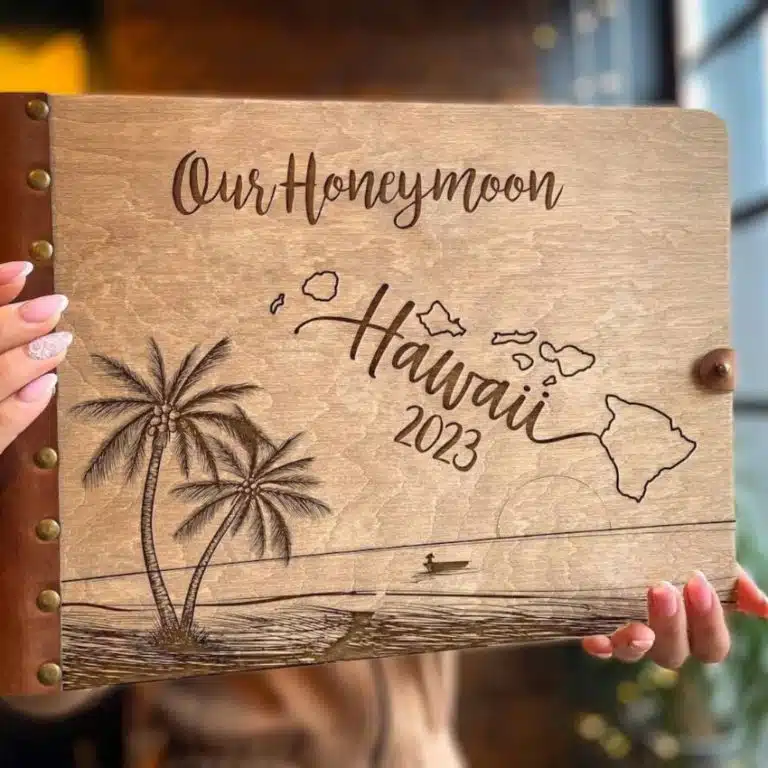 Our Honeymoon
Hawaii
2023